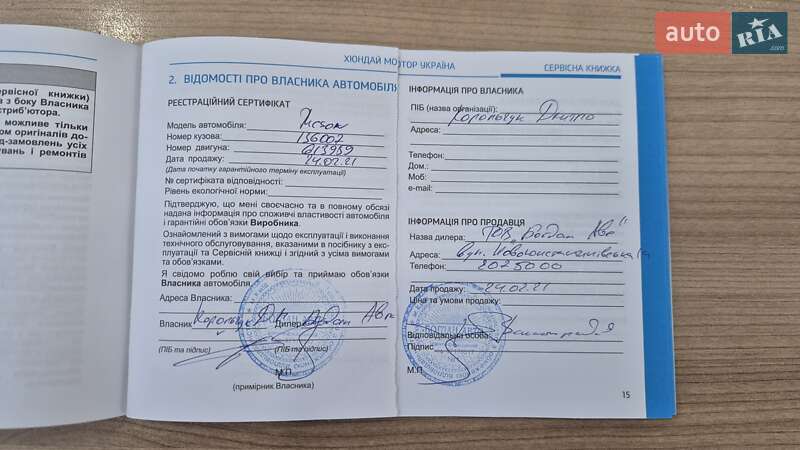 auto RIA .com
ервісної книжки)
в з боку Власника
стриб'ютора.
можливе тільки
ом оригіналів до-
д-замовлень усіх
увань і ремонтів
ХЮНДАЙ МОТОР УКРАЇНА
СЕРВІСНА КНИЖКА
2. ВІДОМОСТІ ПРО ВЛАСНИКА АВТОМОБІЛЯ
РЕЄСТРАЦІЙНИЙ СЕРТИФІКАТ
Модель автомобіля:
Номер кузова: 136002
Номер двигуна: 613959
Дата продажу: 24.02.21
(Дата початку гарантійного терміну експлуатації)
№ сертифіката відповідності:
Рівень екологічної норми:
Підтверджую, що мені своєчасно та в повному обсязі
надана інформація про споживчі властивості автомобіля
і гарантійні обов'язки Виробника.
Ознайомлений з вимогами щодо експлуатації і виконання
технічного обслуговування, вказаними в посібнику з екс-
плуатації та Сервісній книжці і згідний з усіма вимогами
та обов'язками.
Я свідомо роблю свій вибір та приймаю обов'язки
Власника автомобіля.
Адреса Власника:
Власник Корольчук Д.М. Дилер Богдан Авт
(ПІБ та підпис) (ПІБ та підпис)
М.П.
(примірник Власника)
ІНФОРМАЦІЯ ПРО ВЛАСНИКА
ПІБ (назва організації): Корольчук Дмитро
Адреса:
Телефон:
Дом.:
Моб:
e-mail:
ІНФОРМАЦІЯ ПРО ПРОДАВЦЯ
Назва дилера: ТОВ "Богдан Авт"
Адреса: вул.
Телефон: 2025000
Дата продажу: 24.02.21
Ціна та умови продажу:
Відповідальна особа:
Підпис
М.П.
15